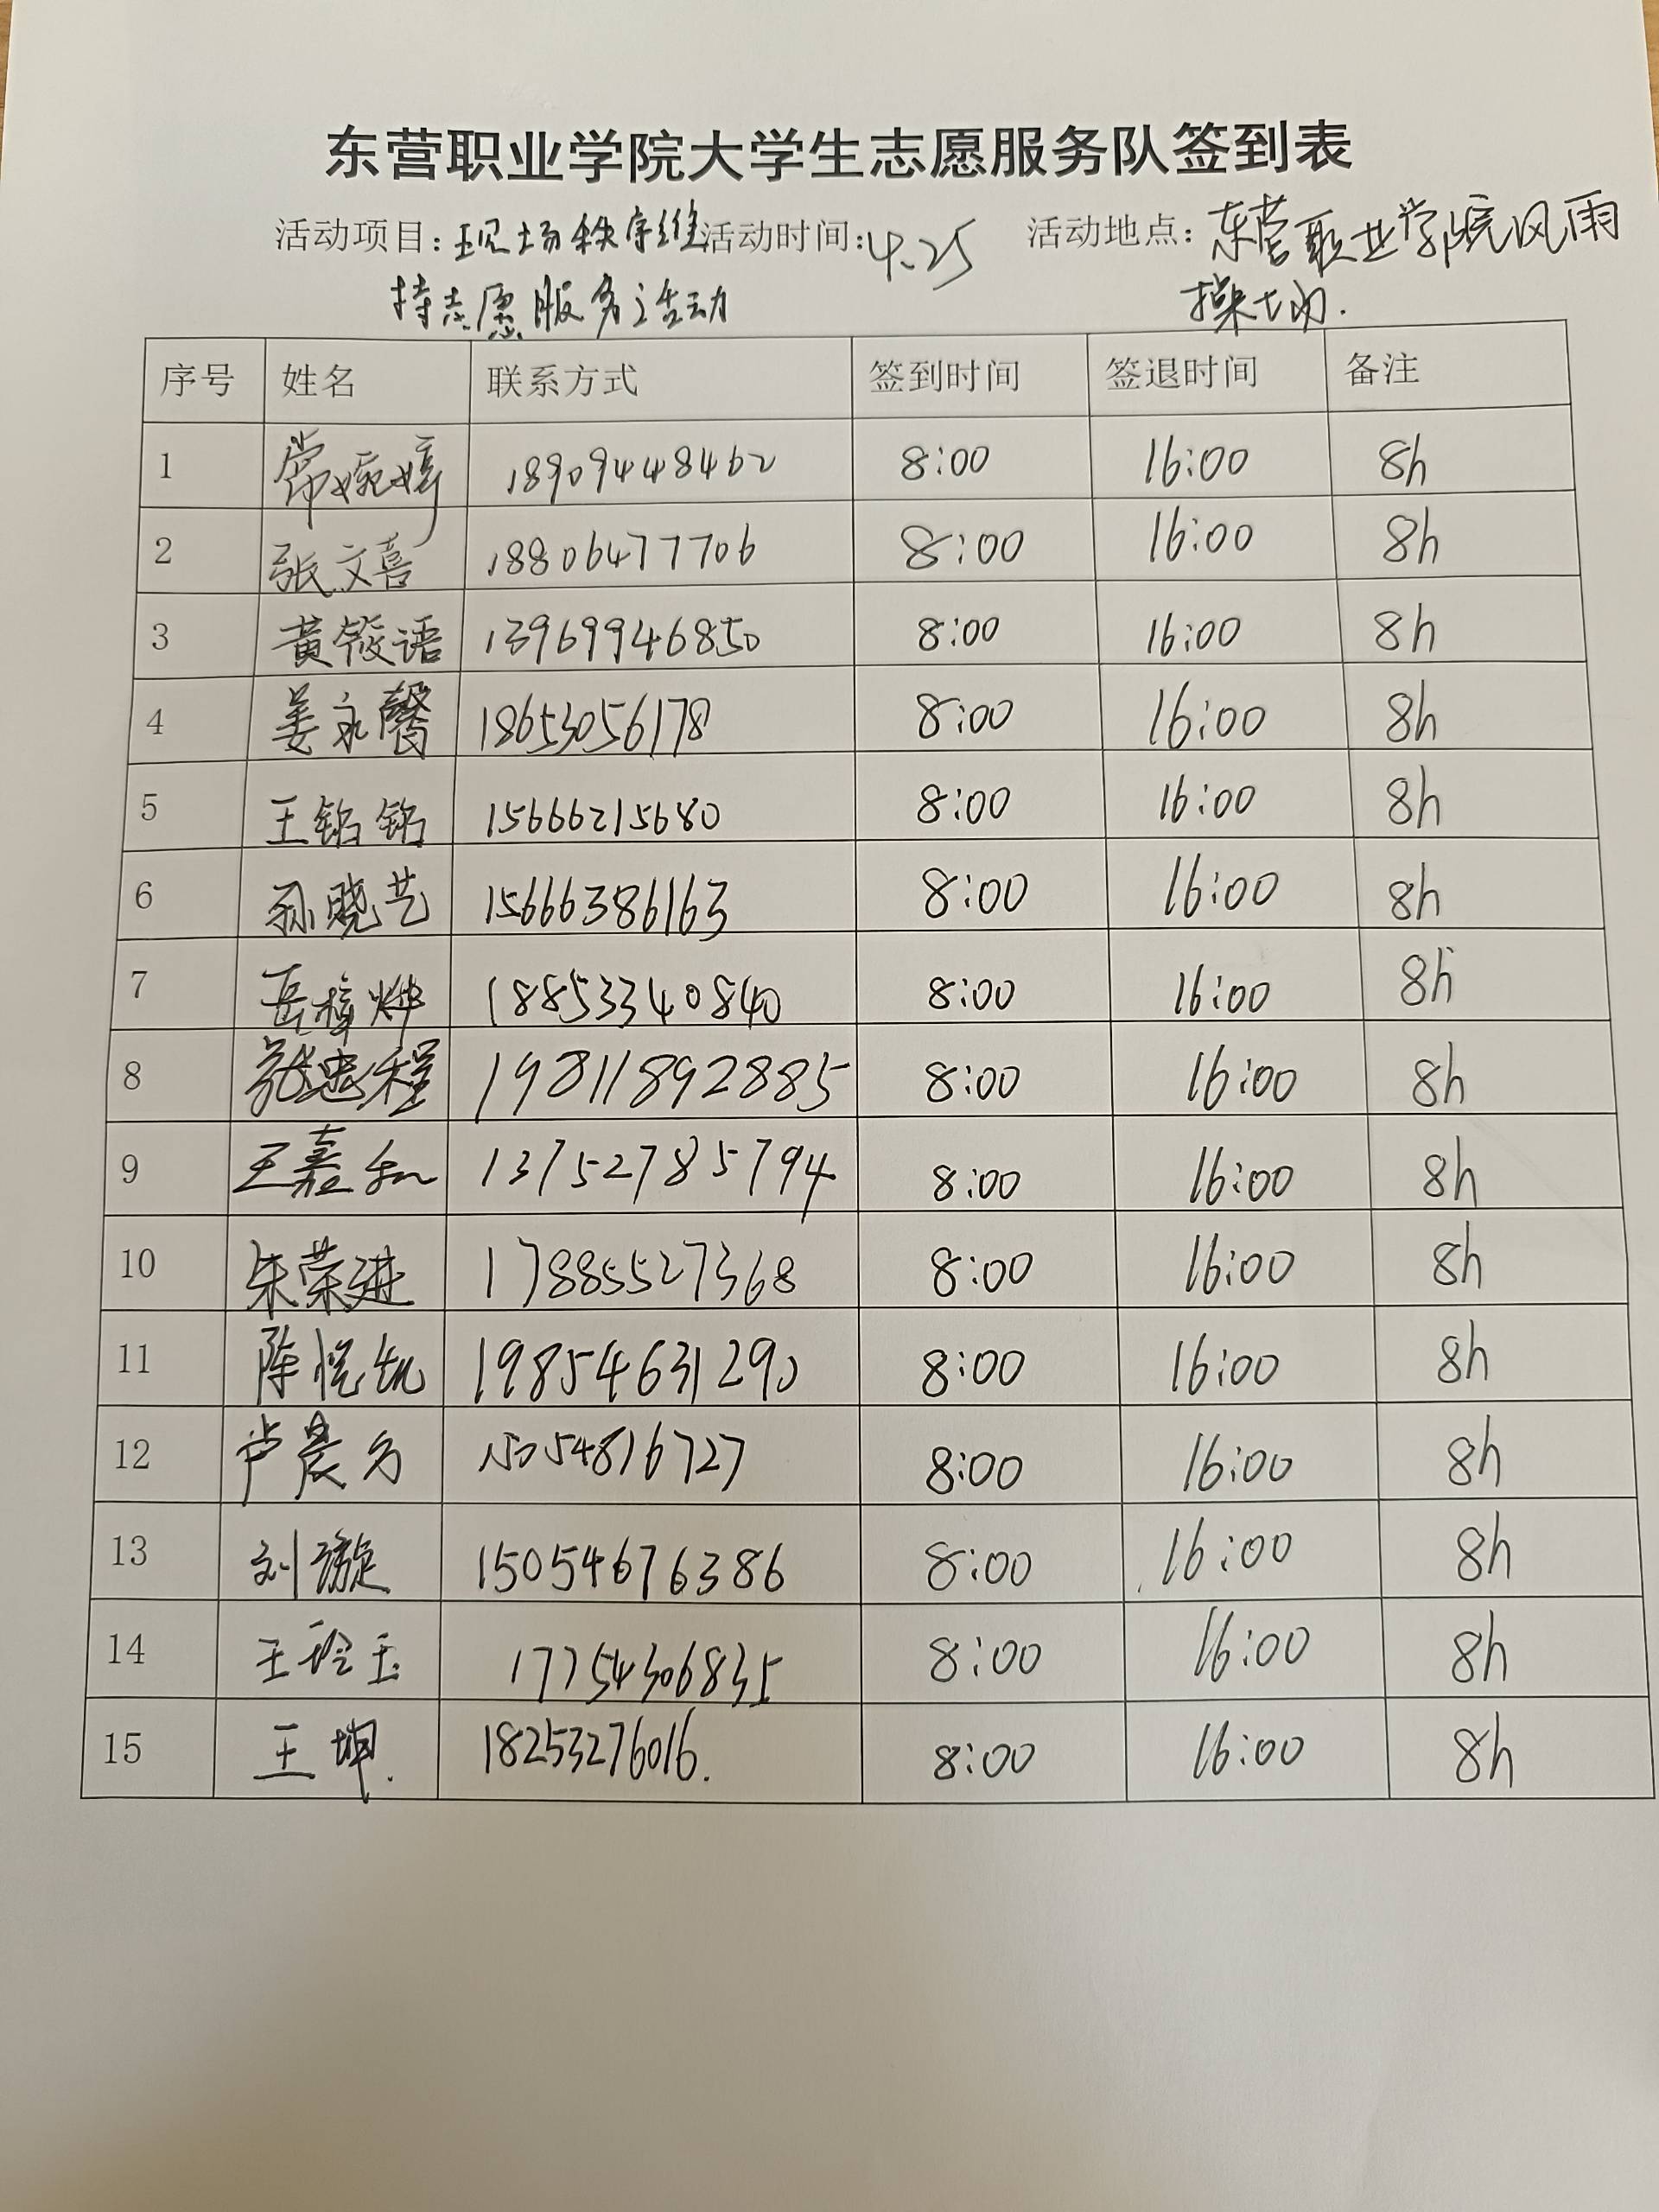 东营职业学院大学生志愿服务队签到表
活动项目：现场秩序维 活动时间：4.25 活动地点：东营职业学院风雨
持志愿服务活动 操场.
序号 姓名 联系方式 签到时间 签退时间 备注
1 常婉婷 18909448462 8:00 16:00 8h
2 张文喜 18806477706 8:00 16:00 8h
3 黄筱语 13969946850 8:00 16:00 8h
4 姜永馨 18653056178 8:00 16:00 8h
5 王铭铭 15666215680 8:00 16:00 8h
6 孙晓艺 15666386163 8:00 16:00 8h
7 岳樟烨 18853340840 8:00 16:00 8h
8 张忠程 19811892885 8:00 16:00 8h
9 王嘉和 13752785794 8:00 16:00 8h
10 朱荣进 17885527368 8:00 16:00 8h
11 陈悦 19854631290 8:00 16:00 8h
12 卢晨 15054816727 8:00 16:00 8h
13 刘璇 15054676386 8:00 16:00 8h
14 王玲玉 17754306835 8:00 16:00 8h
15 王坤. 18253276016. 8:00 16:00 8h